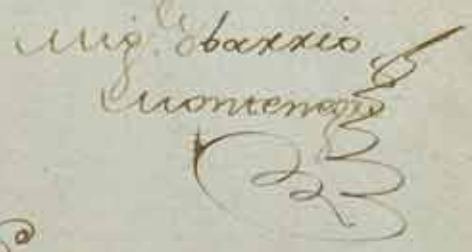 Mig.l Obarrio
Montenegro